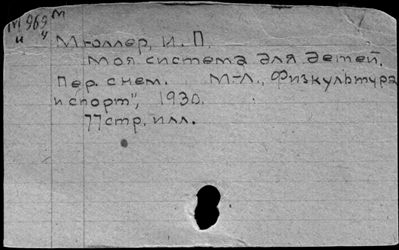 М 969 М
" "
Мюллер, И. П.
Моя система для детей.
Пер. с нем. М-Л., „Физкультура
и спорт", 1930.
77 стр. илл.